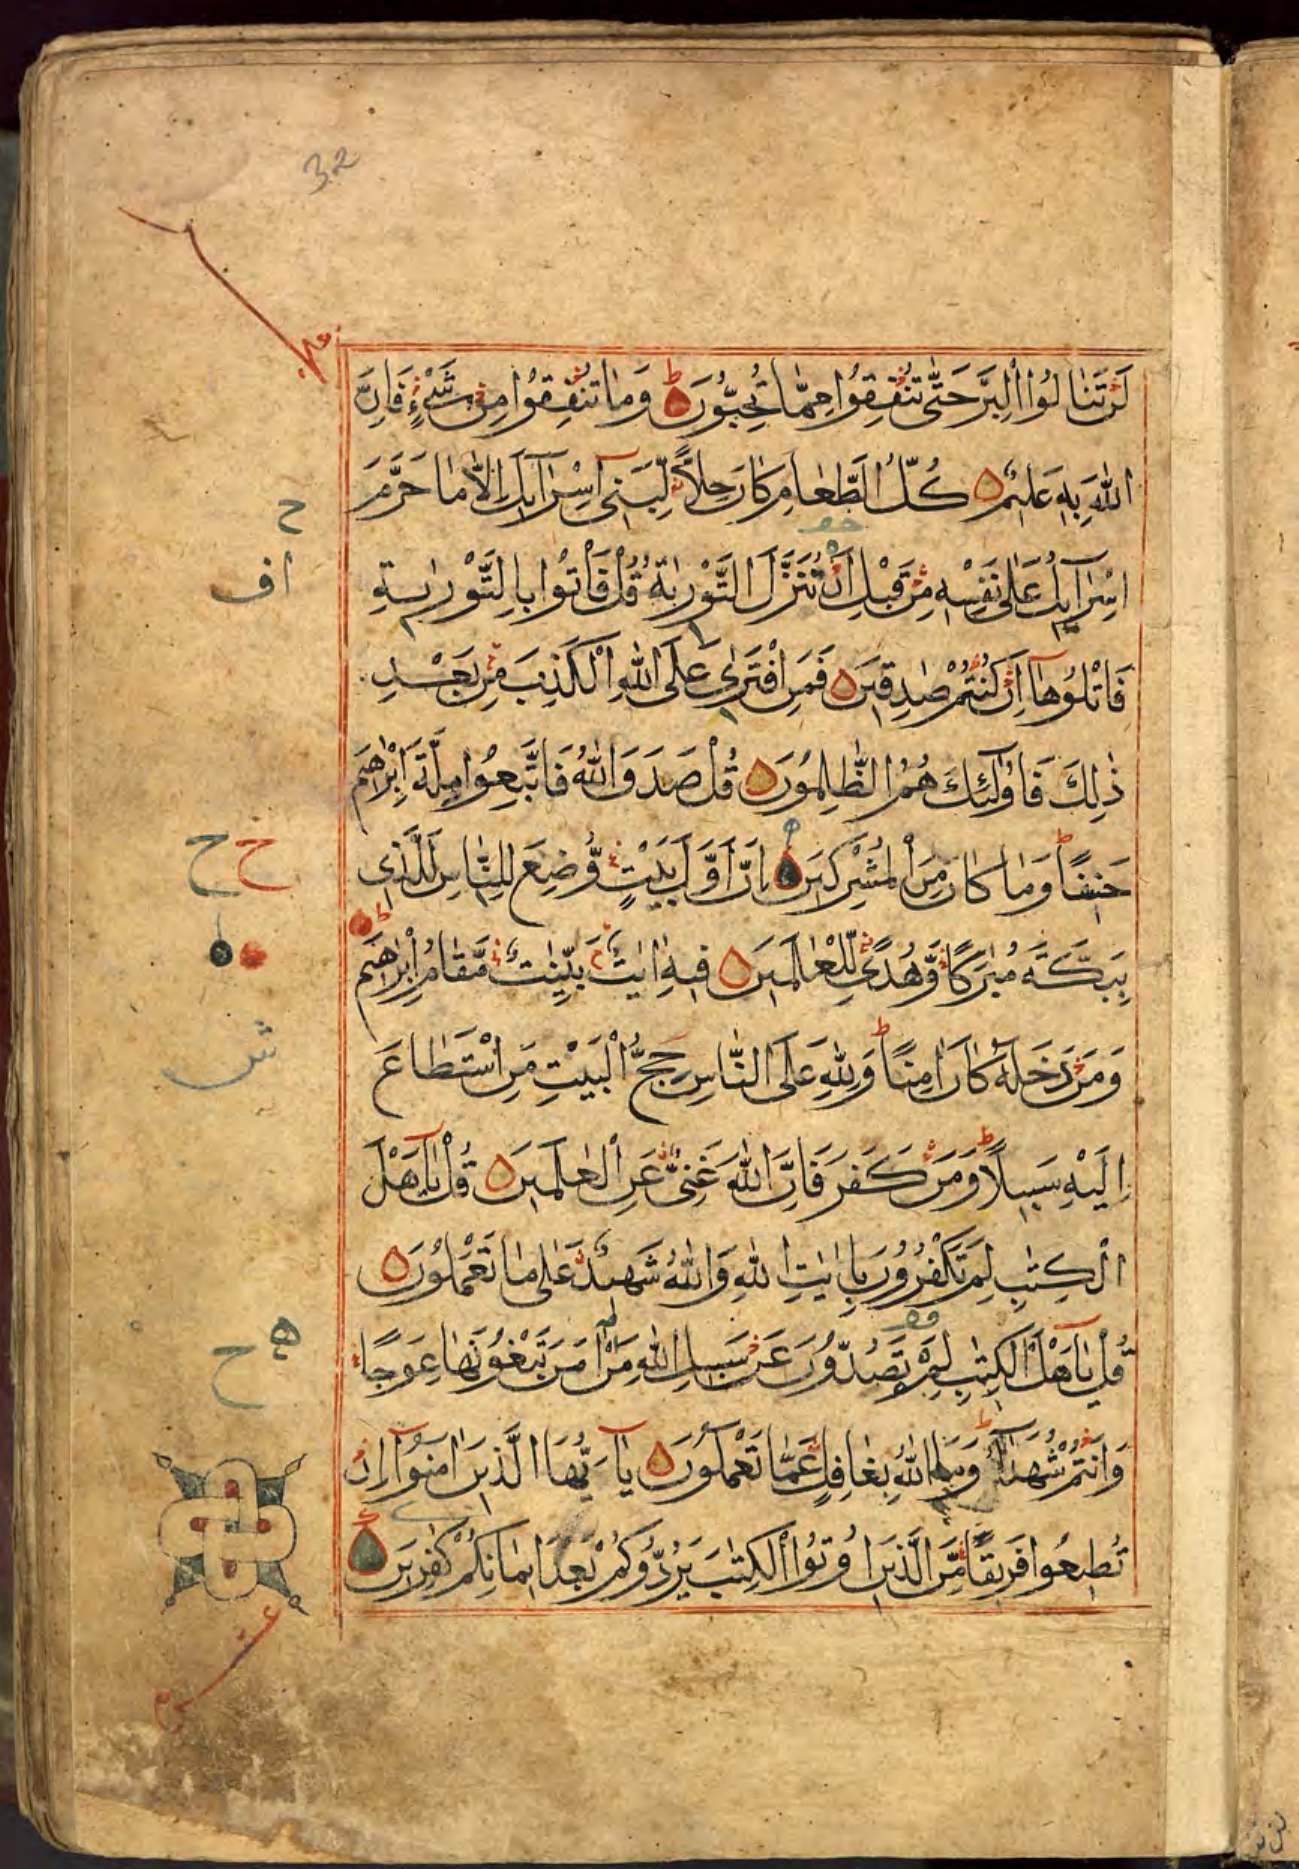 32
لَنْ تَنَالُوا الْبِرَّ حَتّٰى تُنْفِقُوا مِمَّا تُحِبُّوْنَ ط وَمَا تُنْفِقُوْا مِنْ شَيْءٍ فَاِنَّ
اللّٰهَ بِهٖ عَلِيْمٌ كُلُّ الطَّعَامِ كَانَ حِلًّا لِبَنِىْ اِسْرَآئِلَ اِلَّا مَا حَرَّمَ
اِسْرَآئِلُ عَلٰى نَفْسِهٖ مِنْ قَبْلِ اَنْ تُنَزَّلَ التَّوْرٰيةُ قُلْ فَأْتُوا بِالتَّوْرٰيةِ
فَاتْلُوْهَآ اِنْ كُنْتُمْ صٰدِقِيْنَ فَمَنِ افْتَرٰى عَلَى اللّٰهِ الْكَذِبَ مِنْ بَعْدِ
ذٰلِكَ فَاُولٰٓئِكَ هُمُ الظّٰلِمُوْنَ قُلْ صَدَقَ اللّٰهُ فَاتَّبِعُوْا مِلَّةَ اِبْرٰهِيْمَ
حَنِيْفًا ط وَمَا كَانَ مِنَ الْمُشْرِكِيْنَ اِنَّ اَوَّلَ بَيْتٍ وُّضِعَ لِلنَّاسِ لَلَّذِى
بِبَكَّةَ مُبٰرَكًا وَّهُدًى لِّلْعٰلَمِيْنَ فِيْهِ اٰيٰتٌ بَيِّنٰتٌ مَّقَامُ اِبْرٰهِيْمَ
وَمَنْ دَخَلَهٗ كَانَ اٰمِنًا ط وَلِلّٰهِ عَلَى النَّاسِ حِجُّ الْبَيْتِ مَنِ اسْتَطَاعَ
اِلَيْهِ سَبِيْلًا ط وَمَنْ كَفَرَ فَاِنَّ اللّٰهَ غَنِىٌّ عَنِ الْعٰلَمِيْنَ قُلْ يٰٓاَهْلَ
الْكِتٰبِ لِمَ تَكْفُرُوْنَ بِاٰيٰتِ اللّٰهِ وَاللّٰهُ شَهِيْدٌ عَلٰى مَا تَعْمَلُوْنَ
قُلْ يٰٓاَهْلَ الْكِتٰبِ لِمَ تَصُدُّوْنَ عَنْ سَبِيْلِ اللّٰهِ مَنْ اٰمَنَ تَبْغُوْنَهَا عِوَجًا
وَاَنْتُمْ شُهَدَآءُ ط وَمَا اللّٰهُ بِغَافِلٍ عَمَّا تَعْمَلُوْنَ يٰٓاَيُّهَا الَّذِيْنَ اٰمَنُوْٓا اِنْ
تُطِيْعُوا فَرِيْقًا مِّنَ الَّذِيْنَ اُوْتُوا الْكِتٰبَ يَرُدُّوْكُمْ بَعْدَ اِيْمَانِكُمْ كٰفِرِيْنَ
ح
اف
ح ح
ش
ه ح